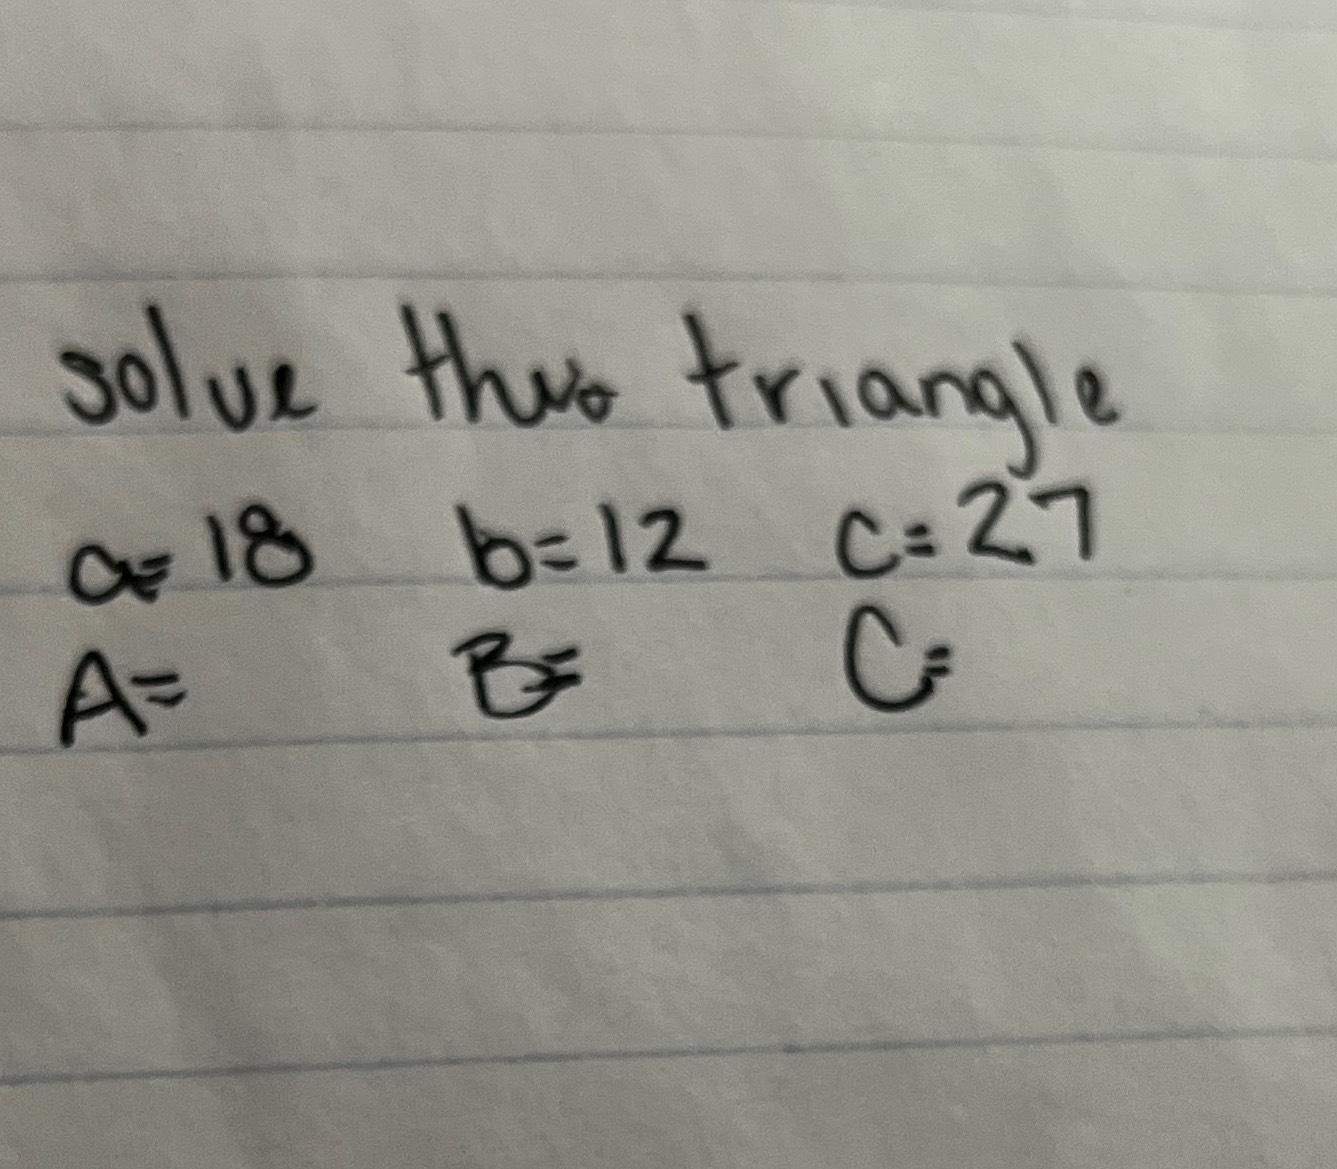 solve this triangle
a= 18 b=12 c=27
A= B= C=